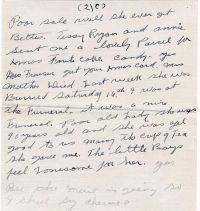 (2)(C)
Poor sale well she ever get
Better. Tessy Ryan and annie
sent me a lovely Parcel for
Xmas Fruit cake candy. yes
Mrs Fraser get your Xmas card. Mrs
mother Died Last week she was
Burried Saturday 16th I was at
the Funeral. it was a nice
Funeral. Poor old Lady she was
92 years old and she was
good to us many the cup of Tea
she gave me. the little Boys
feel lonesome for her. yes
mail is going so